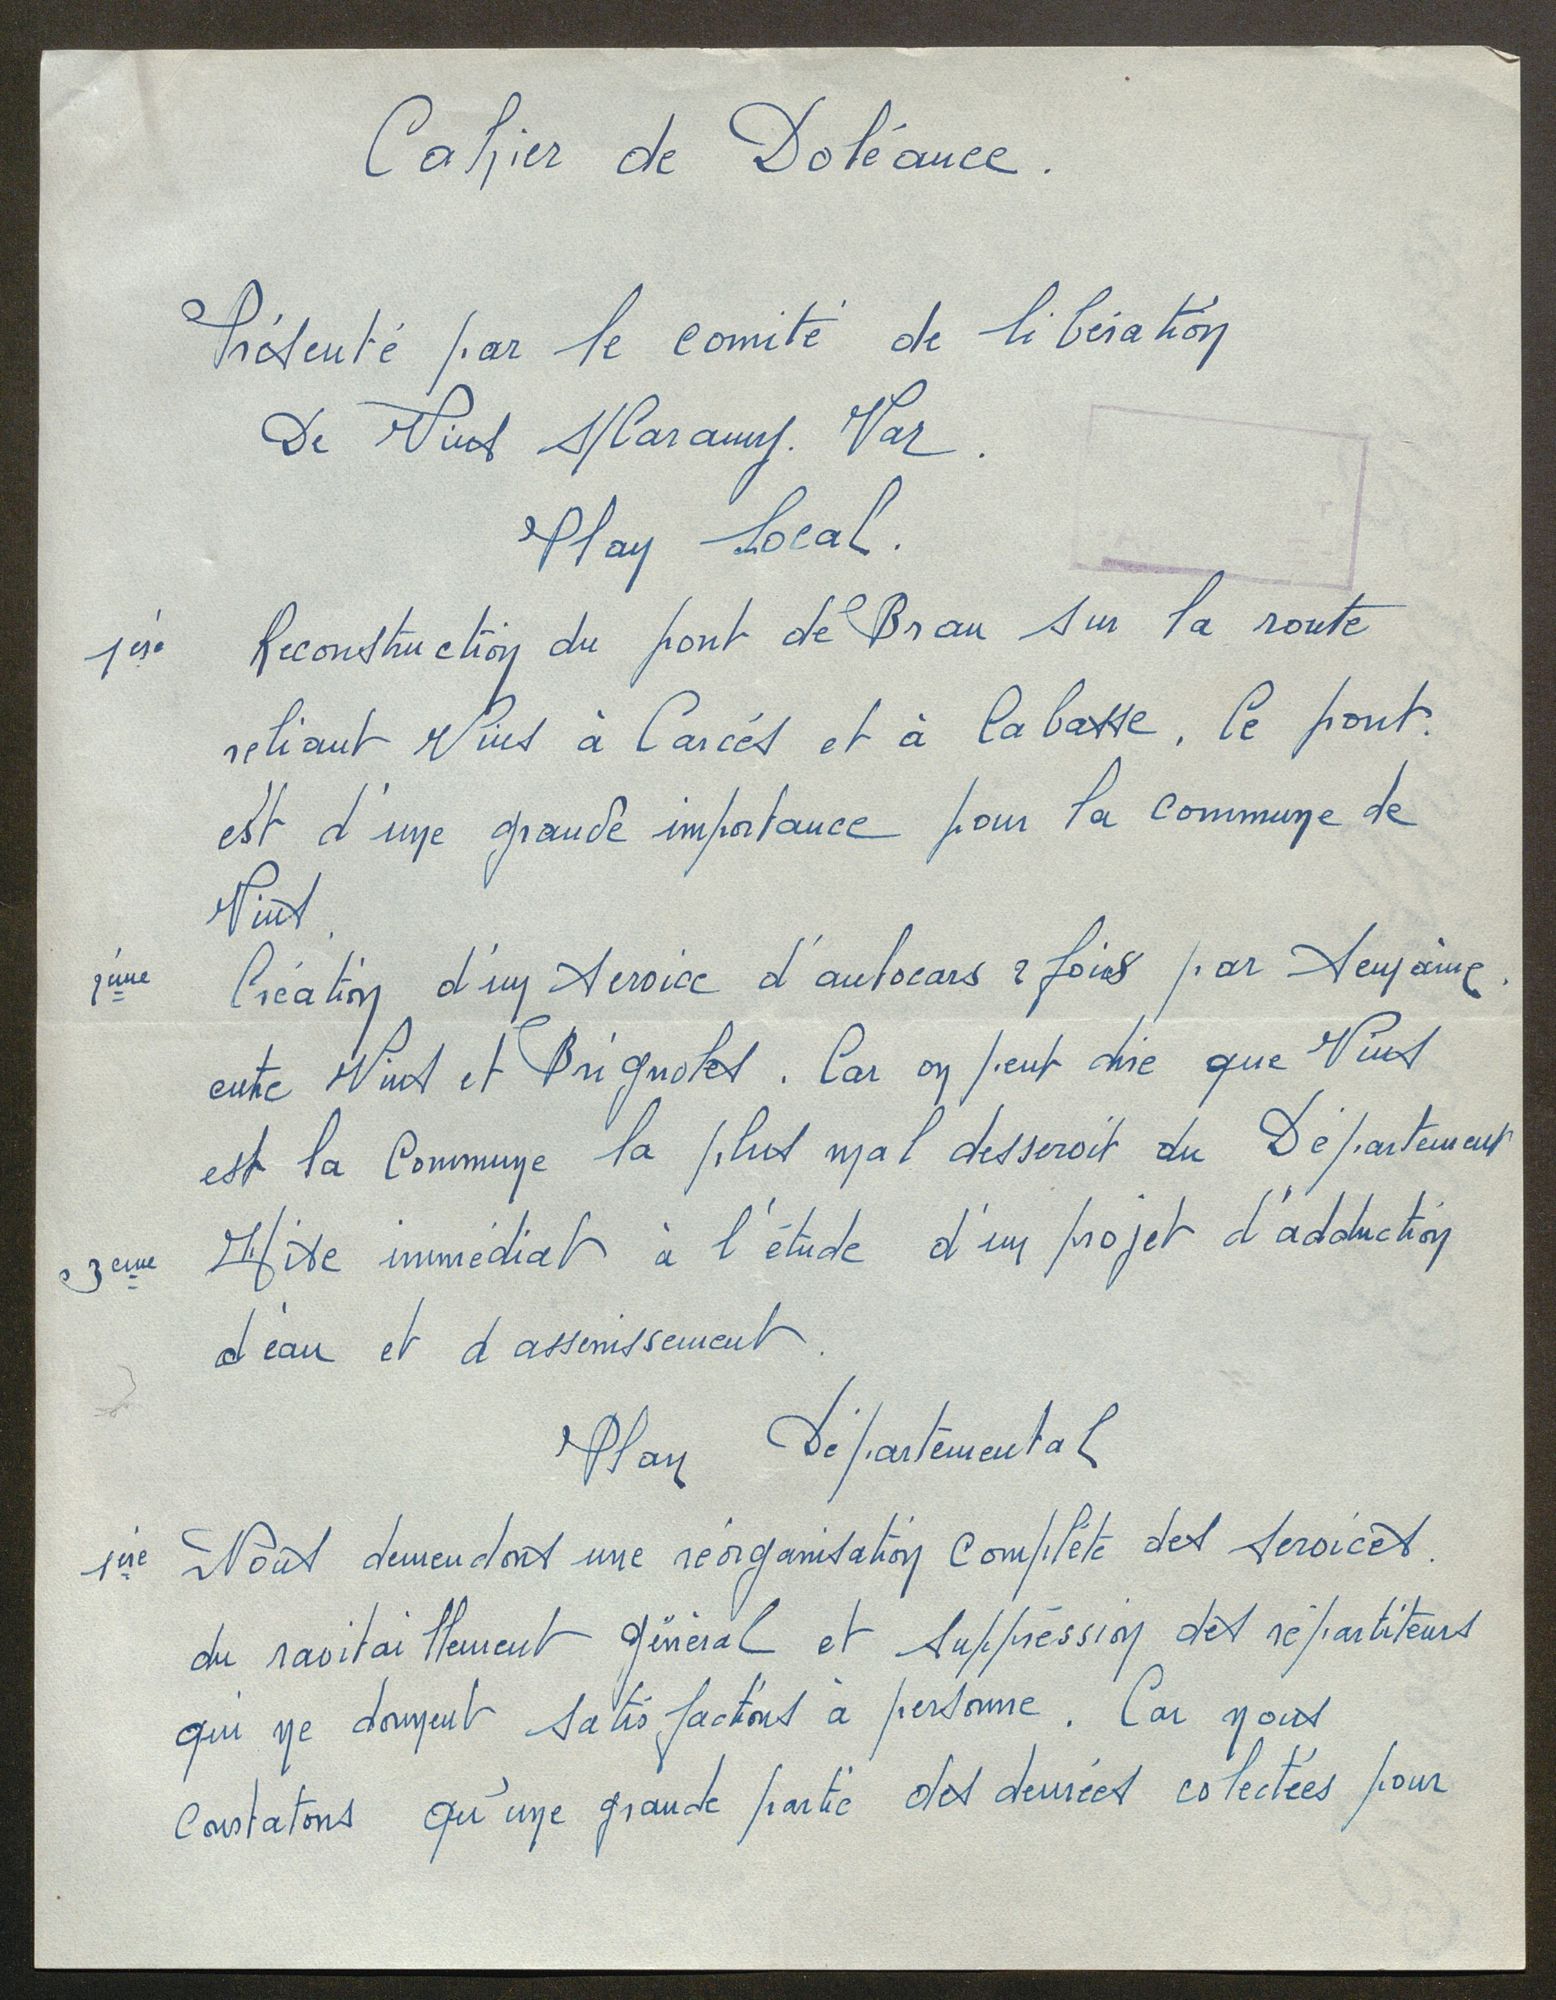 Cahier de Doléance.
Présenté par le comité de libération
De Vins s/Caramy. Var.
Plan Local.
1ère Reconstruction du pont de Brau sur la route
reliant Vins à Carcés et à Cabasse. Ce pont
est d'une grande importance pour la commune de
Vins.
2ème Création d'un service d'autocars 2 fois par semaine.
entre Vins et Brignoles. Car on peut dire que Vins
est la Commune la plus mal desservit du Département
3eme Mise immédiat à l'étude d'un projet d'adduction
d'eau et d assenissement.
Plan Départemental
1ère Nous demendons une réorganisation complète des services.
du ravitaillement général et suppression des répartiteurs
qui ne donnent satisfactions à personne. Car nous
constatons qu'une grande partie des denrées colectées pour